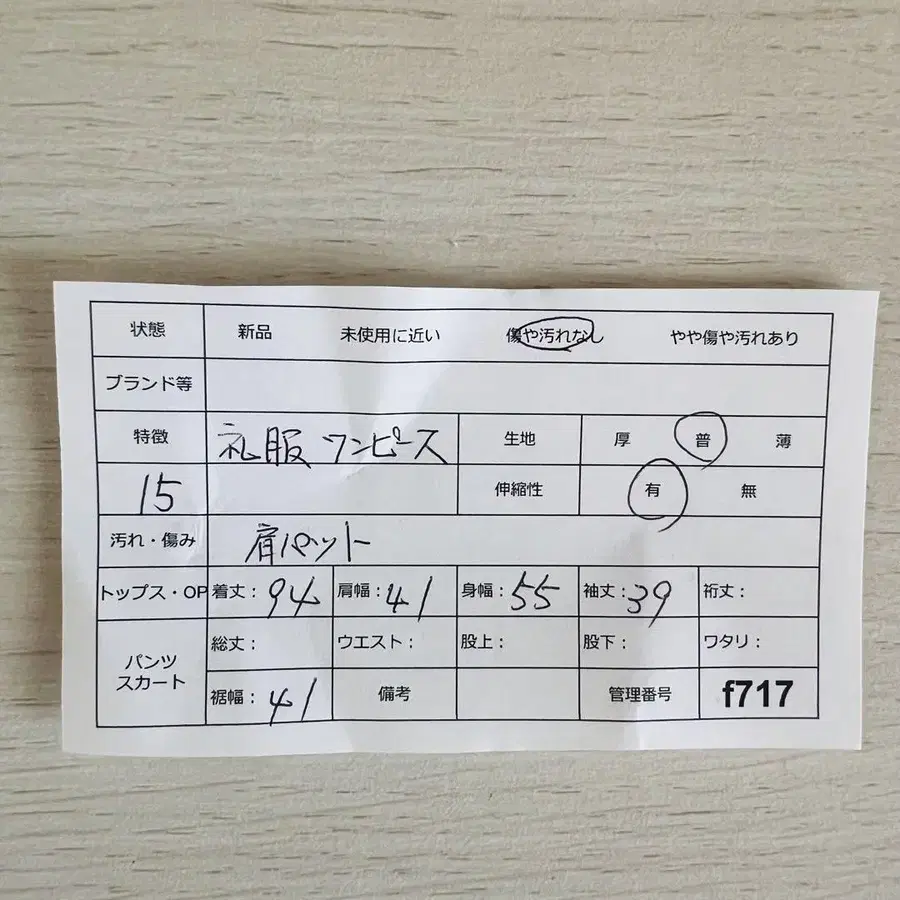 状態 新品 未使用に近い 傷や汚れなし やや傷や汚れあり
ブランド等
特徴 礼服 ワンピース 生地 厚 普 薄
15 伸縮性 有 無
汚れ・傷み 肩パット
トップス・OP 着丈: 94 肩幅: 41 身幅: 55 袖丈: 39 裄丈:
パンツ スカート 総丈: ウエスト: 股上: 股下: ワタリ:
裾幅: 41 備考 管理番号 f717